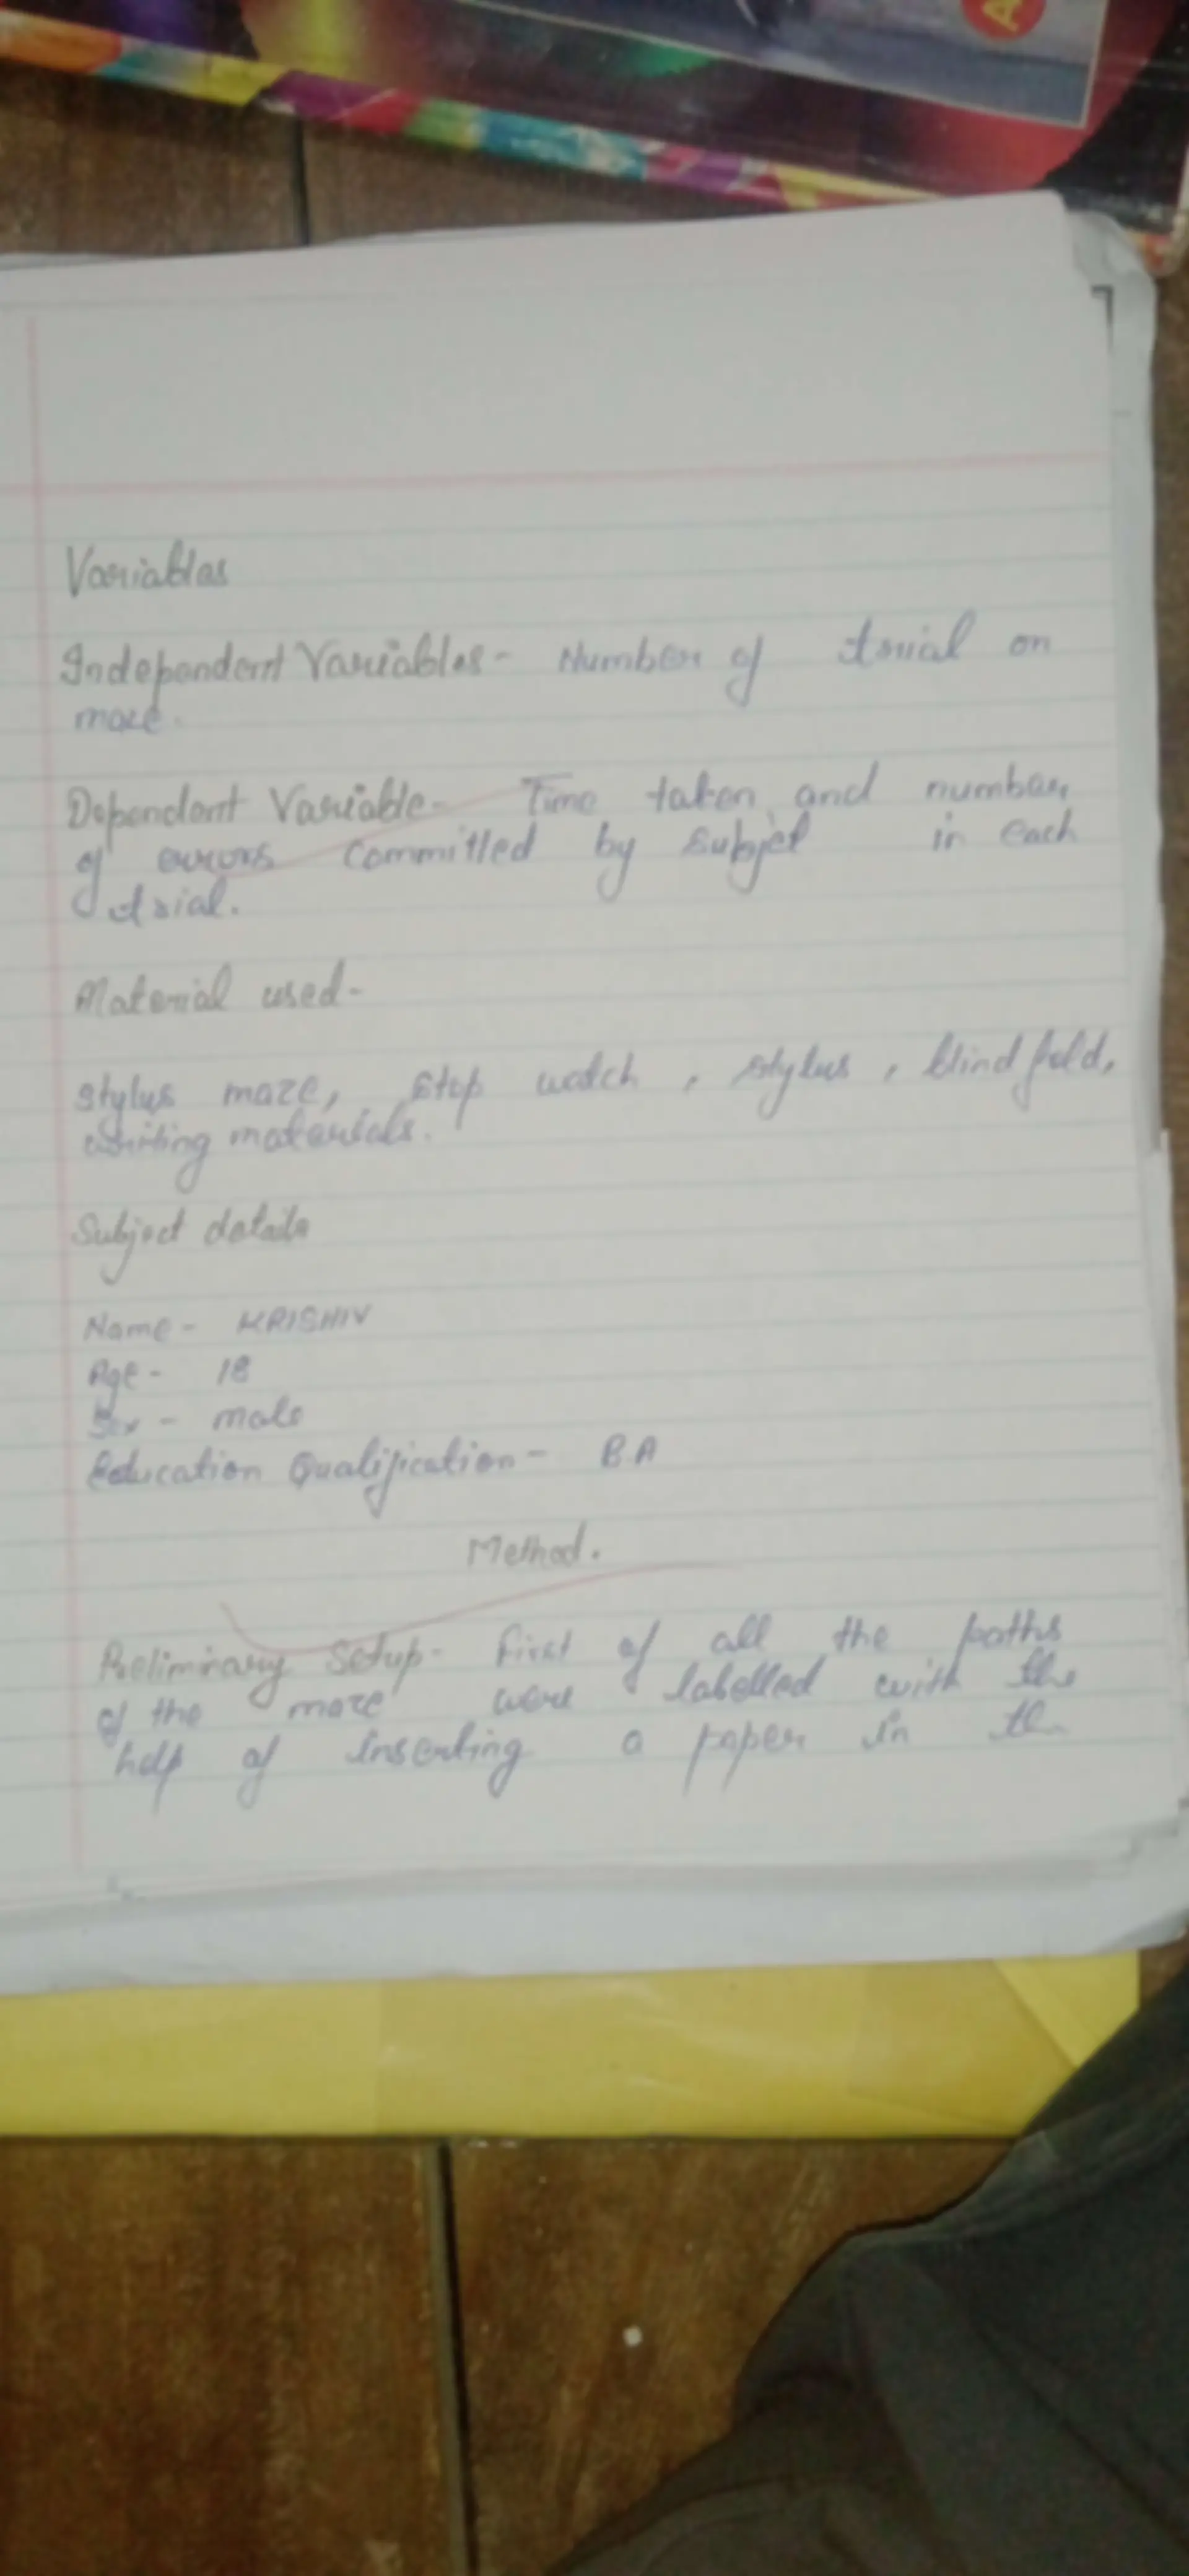 A
Variables
Independent Variables - Number of trial on
maze.
Dependent Variable - Time taken and number
of errors committed by subjet in each
trial.
Material used -
stylus maze, stop watch, stylus, blind fold,
writing materials.
Subject details
Name - KRISHIV
Age - 18
Sex - male
Education Qualification - B.A
Method.
Preliminary Setup - First of all the paths
of the maze were labelled with the
help of inserting a paper in the